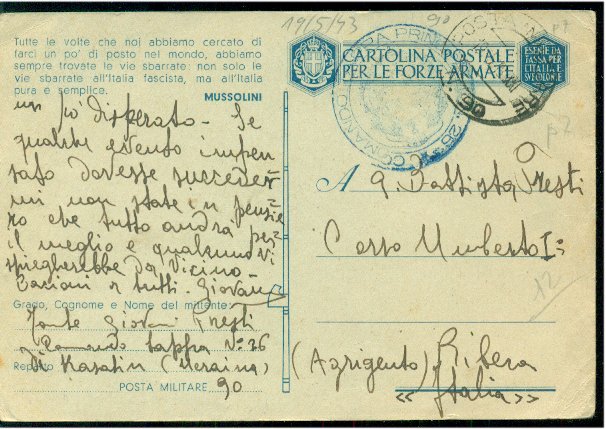 19/5/43
90
Tutte le volte che noi abbiamo cercato di
farci un po' di posto nel mondo, abbiamo
sempre trovate le vie sbarrate: non solo le
vie sbarrate all'Italia fascista, ma all'Italia
pura e semplice.
MUSSOLINI
CARTOLINA POSTALE
PER LE FORZE ARMATE
ESENTE DA
TASSA PER
L'ITALIA E
SUE COLONIE.
COMANDO
un po' disperato - Se
qualche evento impen
sato dovesse succeder
mi non state n pensie
ro che tutto andrà per
il meglio e qualcuno vi
spiegherebbe da vicino -
Bacioni a tutti. Giovanni
Grado, Cognome e Nome del mittente:
Giovanni Presti
Comando Tappa N° 26
Reparto
Di Kasatin (Ucraina)
POSTA MILITARE 90
p2
A G. Battista Presti
Corso Umberto I°
12
(Agrigento) Ribera
« Italia »